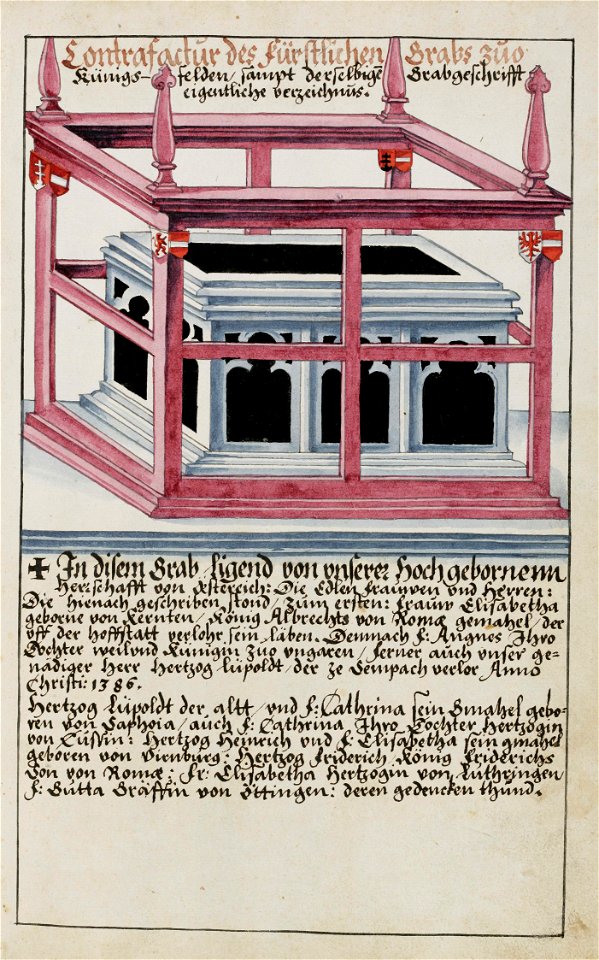 Contrafactur des Fürstlichen Grabs zuo
Künigs-felden/ sampt derselbige Grabgeschrifft
eigentliche verzeichnus.
✠ In disem Grab ligend von unserer Hochgebornenn
Herrschafft von Österreich: Die Edlen frauwen und Herren:
Die hienach geschriben stond/ zum ersten: frauw Elisabetha
geborne von Kernten/ König Albrechts von Romæ gemahel/ der
uff der Hoffstatt verlohr sein läben. Demnach f: Angnes Ihro
Dochter weilund Künigin zuo ungaren/ ferner auch unser ge-
nädiger Herr Hertzog Lüpoldt/ der ze Sempach verlor Anno
Christi: 1386.
Hertzog Lüpoldt der altt/ und f: Cathrina sein Gmahel gebo-
ren von Saphoia/ auch f: Cathrina Ihro Tochter Hertzogin
von Cussin: Hertzog Heinrich und f: Elisabetha sein gmahel
geboren von Virnburg: Hertzog friderich König friderichs
Son von Romæ: fr: Elisabetha Hertzogin von Luthringen
f: Gutta Gräffin von Öttingen: deren gedencken thund.